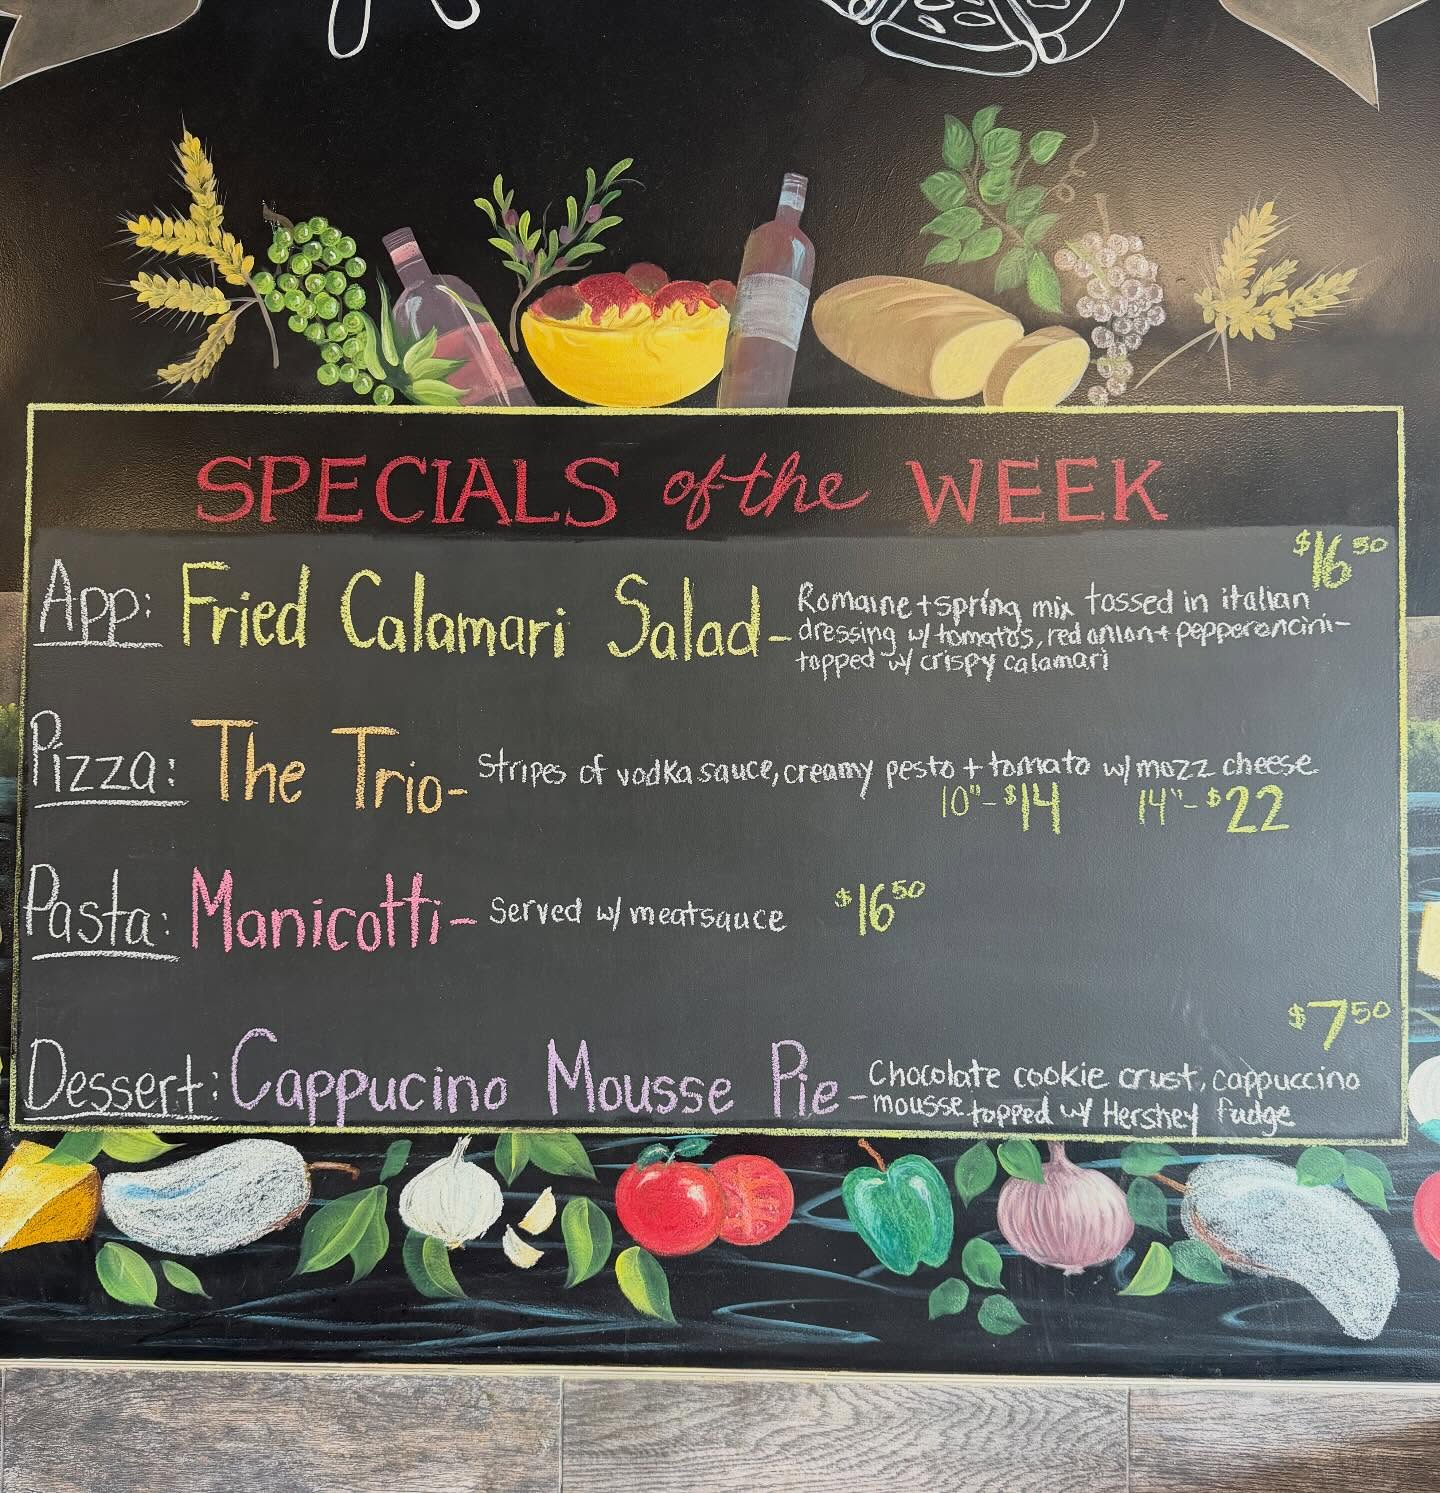 SPECIALS of the WEEK
$16 50
App: Fried Calamari Salad - Romaine + spring mix tossed in italian
dressing w/ tomatos, red onion + pepperoncini -
topped w/ crispy calamari
Pizza: The Trio - Stripes of vodka sauce, creamy pesto + tomato w/ mozz cheese
10" - $14 14" - $22
Pasta: Manicotti - Served w/ meatsauce $16 50
$7 50
Dessert: Cappucino Mousse Pie - Chocolate cookie crust, cappuccino
mousse topped w/ Hershey fudge